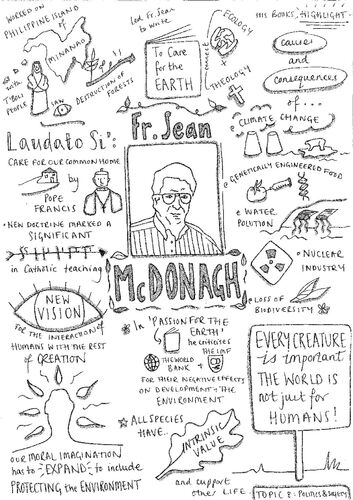 WORKED ON
PHILIPPINE ISLAND
OF
MINANAO
with
T'BOLI
PEOPLE
SAW
DESTRUCTION OF
FORESTS
Led Fr. Sean
to write
To Care
for the
EARTH
ECOLOGY
THEOLOGY
HIS BOOKS HIGHLIGHT
causes
and
consequences
of ...
CLIMATE CHANGE
GENETICALLY ENGINEERED FOOD
WATER
POLUTION
NUCLEAR
INDUSTRY
LOSS OF
BIODIVERSITY
Laudato Si':
CARE FOR OUR COMMON HOME
by
POPE
FRANCIS
NEW DOCTRINE MARKED A
SIGNIFICANT
SHIFT
in Catholic teaching
NEW
VISION
FOR THE INTERACTION OF
HUMANS WITH THE REST
OF CREATION
OUR MORAL IMAGINATION
has to EXPAND to include
PROTECTING the ENVIRONMENT
Fr. Sean
McDONAGH
In 'PASSION FOR THE
EARTH'
he criticizes
THE IMF
THE WORLD
BANK
FOR THEIR NEGATIVE EFFECTS
ON DEVELOPMENT & THE
ENVIRONMENT
ALL SPECIES
HAVE...
INTRINSIC
VALUE
and support
other LIFE
EVERY CREATURE
is important
THE WORLD IS
not just for
HUMANS!
TOPIC: POLITICS & SOCIETY